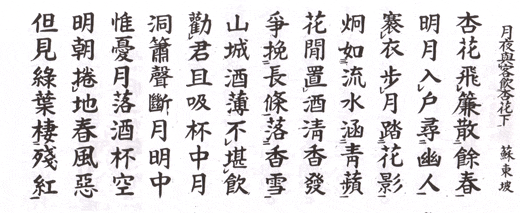 月夜與客飲杏花下 蘇東坡
杏花飛簾散餘春
明月入戶尋幽人
褰衣步月踏花影
炯如流水涵青蘋
花閒置酒清香發
爭挽長條落香雪
山城酒薄不堪飲
勸君且吸杯中月
洞簫聲斷月明中
惟憂月落酒杯空
明朝捲地春風惡
但見綠葉棲殘紅